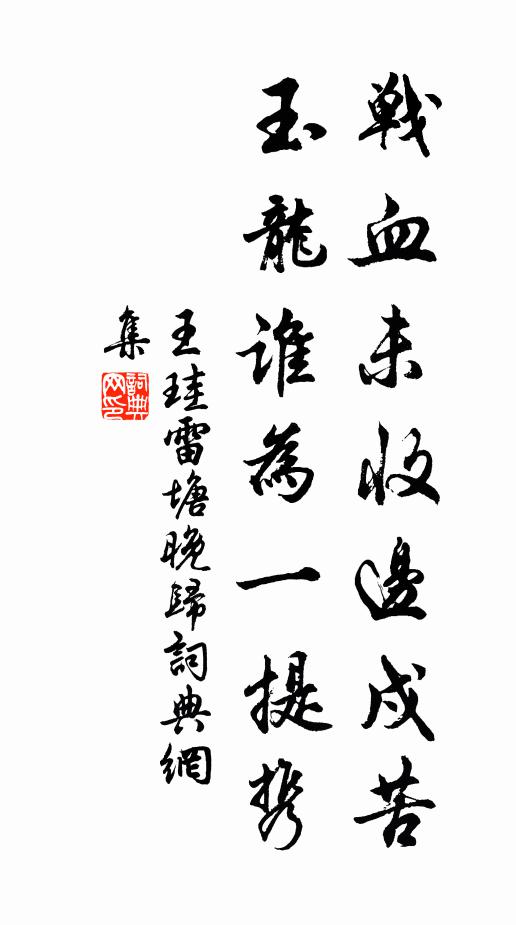 戦血未收邊戍苦
玉龍誰為一提携
王珪雷塘晚歸詞典網
集
詞典
网印